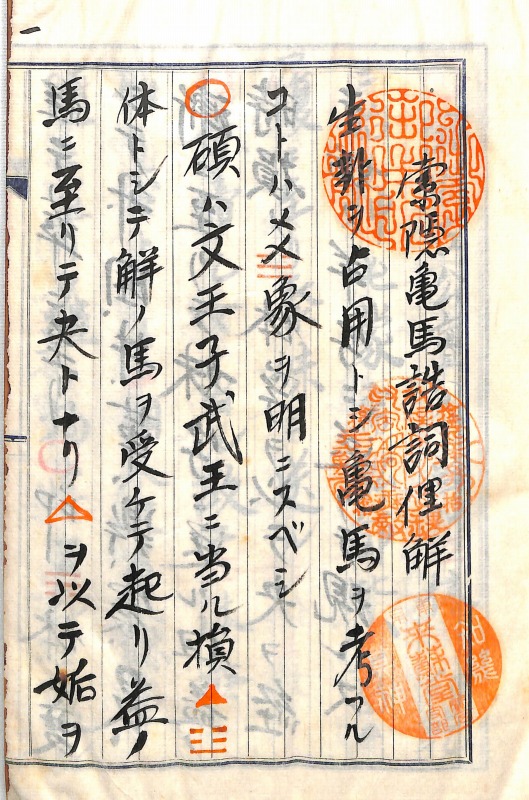 索隠亀馬誥詞俚解
生卦ヲ占用トシ亀馬ヲ考フル
コトハメ象ヲ明ニスベシ
○碩ハ文王子武王ニ当ル損▲☳
体トシテ解ノ馬ヲ受ケテ起リ益ノ
馬ニ至リテ夬トナリ△ヲ以テ姤ヲ